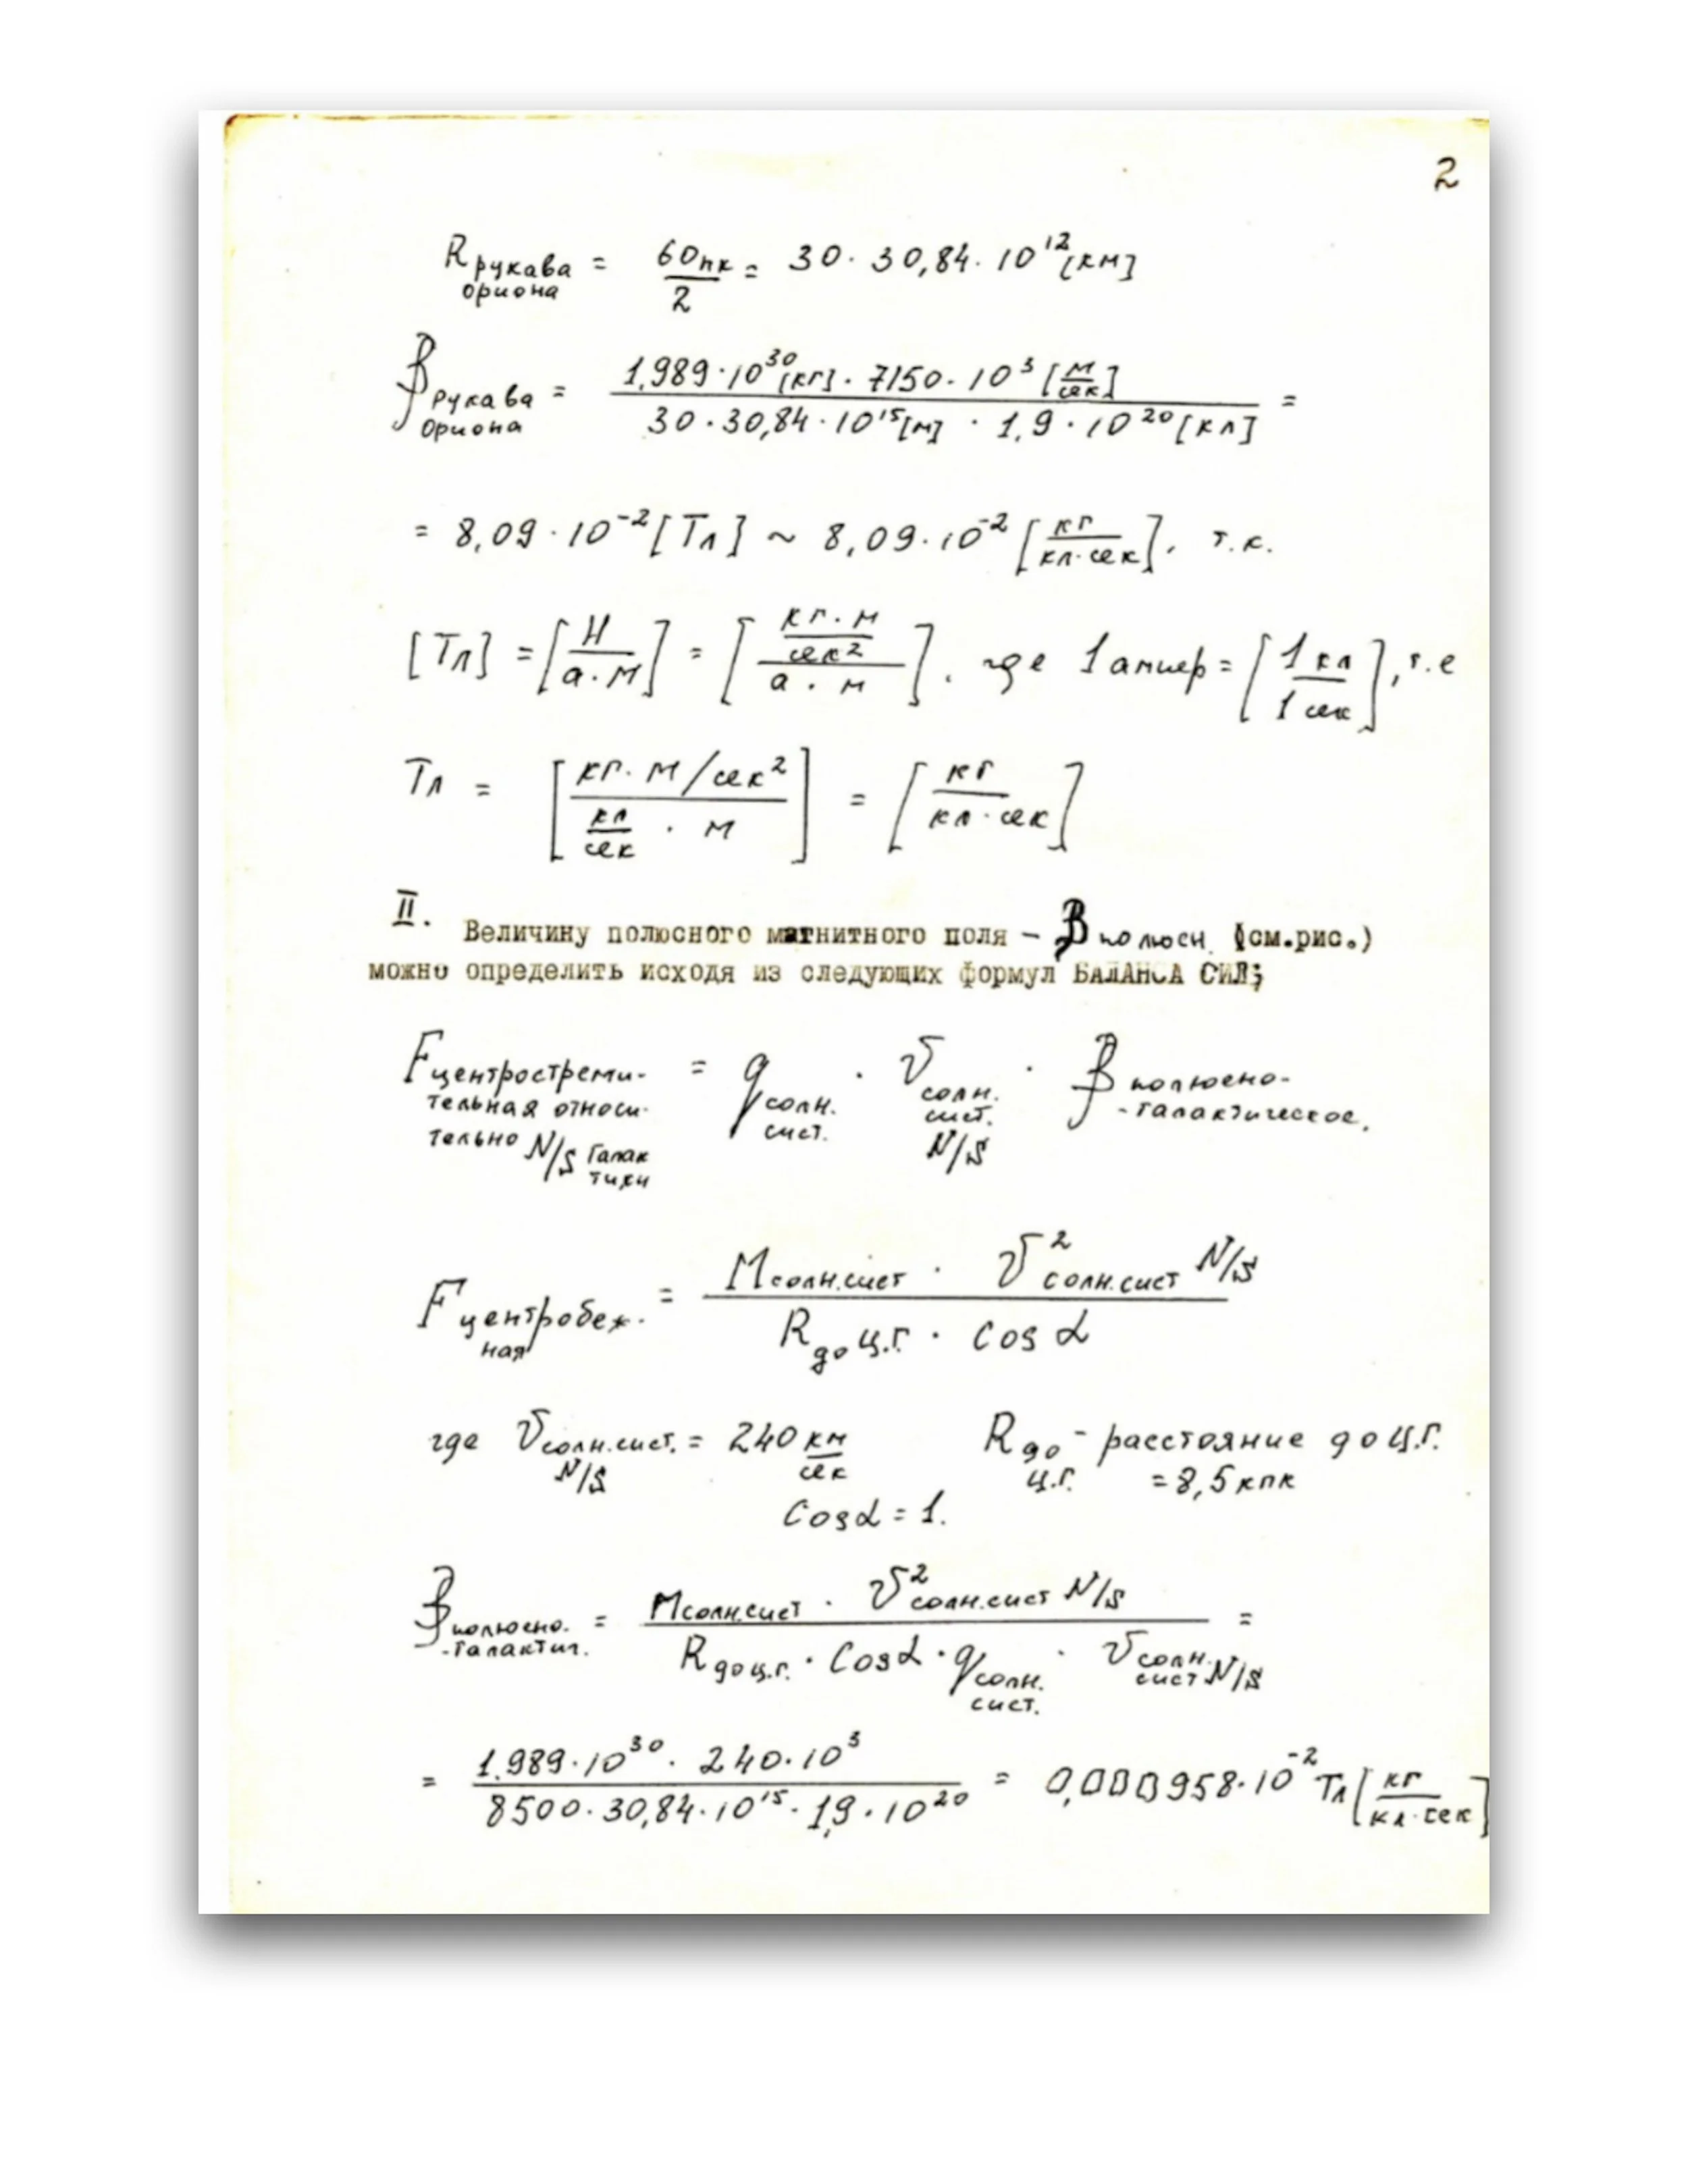 2
R рукава ориона = 60пк / 2 = 30 · 30,84 · 10^12 [км]
B рукава Ориона = 1,989 · 10^30 [кг] · 7150 · 10^3 [м/сек] / 30 · 30,84 · 10^15 [м] · 1,9 · 10^20 [кл] =
= 8,09 · 10^-2 [Тл] ~ 8,09 · 10^-2 [кг / кл·сек], т.к.
[Тл] = [Н / а·м] = [кг·м / сек^2 / а · м], где 1 ампер = [1 кл / 1 сек], т.е
Тл = [кг·м/сек^2 / кл/сек · м] = [кг / кл·сек]
II. Величину полюсного магнитного поля – B полюсн. (см.рис.)
можно определить исходя из следующих формул БАЛАНСА СИЛ;
F центростреми-тельная относи-тельно N/S Галактики = q солн. сист. · v солн. сист. N/S · B полюсно-галактическое.
F центробеж.ная = M солн.сист · v^2 солн.сист N/S / R до ц.г. · Cos α
где v солн.сист. N/S = 240 км/сек R до ц.г. - расстояние до ц.г. = 8,5 кпк
Cos α = 1.
B полюсно.-галактич. = M солн.сист · v^2 солн.сист N/S / R до ц.г. · Cos α · q солн. сист. · v солн. сист N/S =
= 1.989 · 10^30 · 240 · 10^3 / 8500 · 30,84 · 10^15 · 1,9 · 10^20 = 0,000958 · 10^-2 Тл [кг / кл·сек]